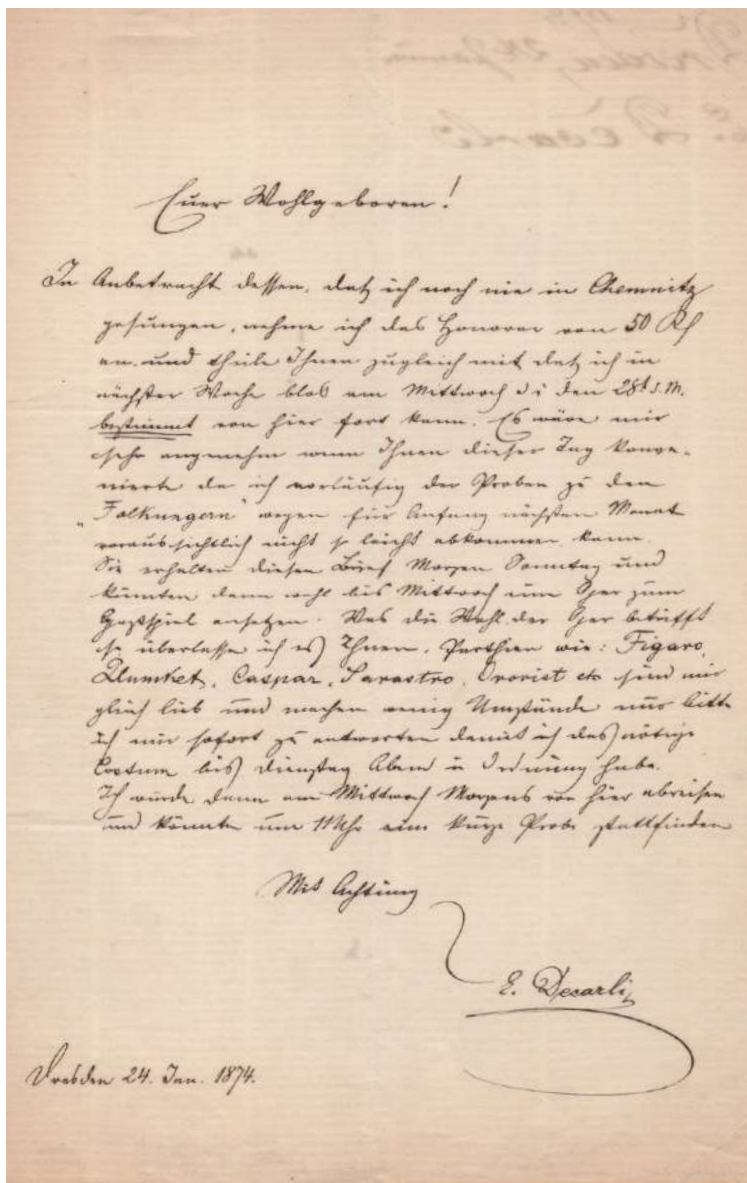 Euer Wohlgeboren!
In Anbetracht dessen, daß ich noch nie in Chemnitz
gesungen, nehme ich das Honorar von 50 Rℓ
an und theile Ihnen zugleich mit daß ich in
nächster Woche blos am Mittwoch d i den 28t d. M.
bestimmt von hier fort kann. Es wäre mir
sehr angenehm wenn Ihnen dieser Tag konve-
nierte da ich vorläufig der Proben zu den
"Folkungern" wegen für Anfang nächsten Monat
voraussichtlich nicht so leicht abkommen kann.
Sie erhalten diesen Brief Morgen Sonntag und
könnten dann wohl bis Mittwoch eine Oper zum
Gastspiel ansetzen. Was die Wahl der Oper betrifft
so überlasse ich es Ihnen. Parthien wie: Figaro,
Plumket, Caspar, Sarastro, Orovist etc sind mir
gleich lieb und machen wenig Umstände nur bitte
ich mir sofort zu antworten damit ich das nötige
Costum bis Dienstag Abend in Ordnung habe.
Ich würde dann am Mittwoch Morgens von hier abreisen
und könnte um 11 Uhr eine kurze Probe stattfinden
Mit Achtung
E. Decarli
Dresden 24. Jan. 1874.